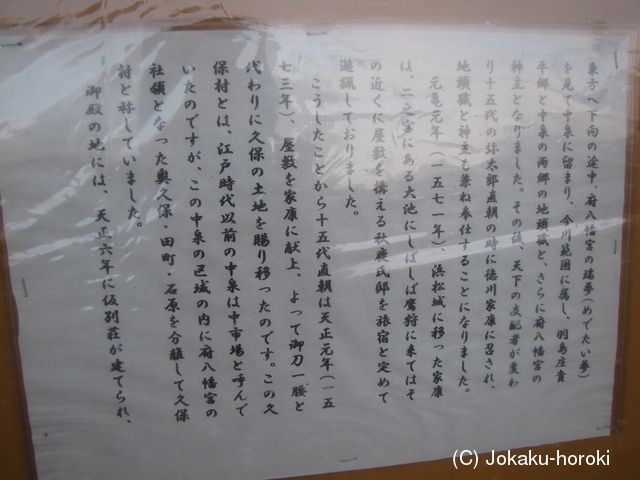 東方へ下向の途中、府八幡宮の瑞夢(めでたい夢)
を見て中泉に留まり、今川範囲に属し、羽鳥庄貴
平郷と中泉の両郷の地頭職と、さらに府八幡宮の
神主となりました。その後、天下の支配者が変わ
り十五代の弥太郎直朝の時に徳川家康に召され、
地頭職と神主も兼ね奉仕することになりました。
元亀元年(一五七一年)浜松城に移った家康
は、二之宮にある大池にしばしば鷹狩に来てはそ
の近くに屋敷を構える秋鹿氏邸を旅宿と定めて
遊猟しておりました。
こうしたことから十五代直朝は天正元年(一五
七三年)、屋敷を家康に献上、よって御刀一腰と
代わりに久保の土地を賜り移ったのです。この久
保村とは、江戸時代以前の中泉は中市場と呼んで
いたのですが、この中泉の区域の内に府八幡宮の
社領となった奥久保・田町・石原を分離して久保
村と称していました。
御殿の地には、天正六年に仮別荘が建てられ、
(C) Jokaku-horoki